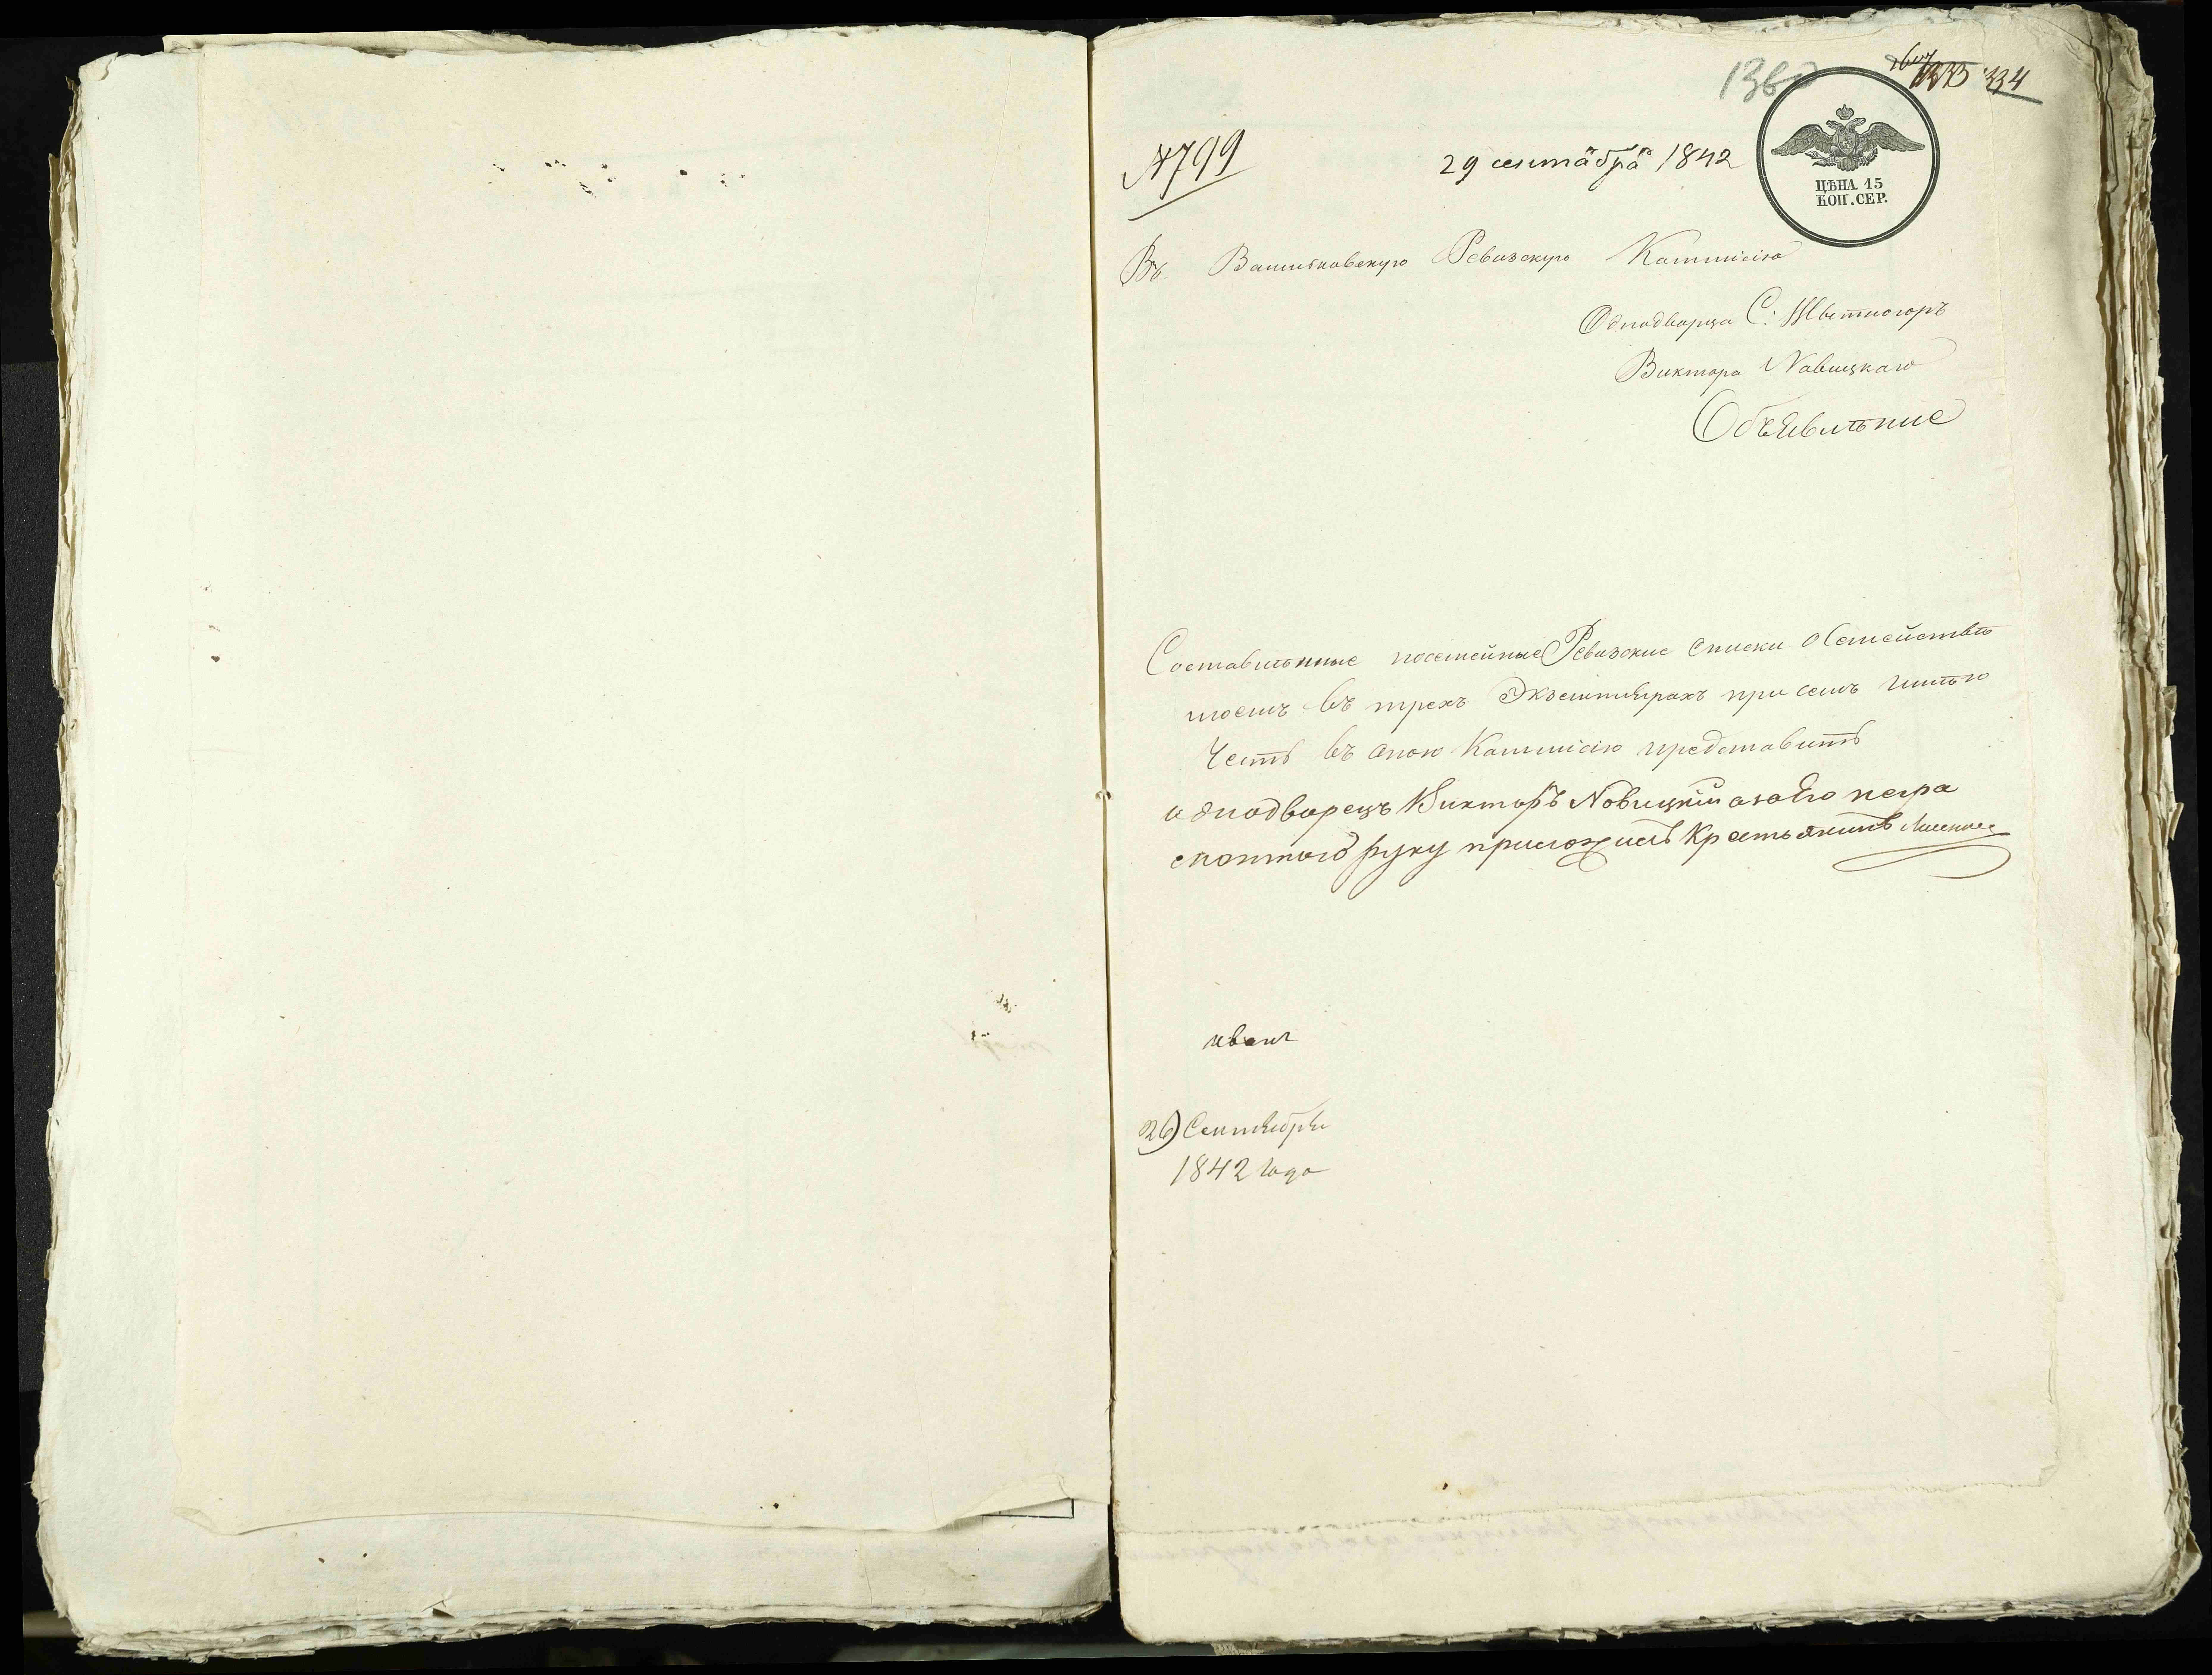 1360
334
№799
29 сентября 1842
ЦѢНА 15
КОП. СЕР.
Въ Ревизскую Коммисію
Однодворца С:
Виктора Новицкаго
Объявление
Составленные посемейные Ревизские списки о Семействѣ
моемъ въ трехъ Экземплярахъ при семъ имѣю
Честь въ оною Коммисію представить
однодворецъ Викторъ Новицкий а за Его негра
мотного руку приложилъ Крестьянинъ
иван
26 Сентября
1842 года